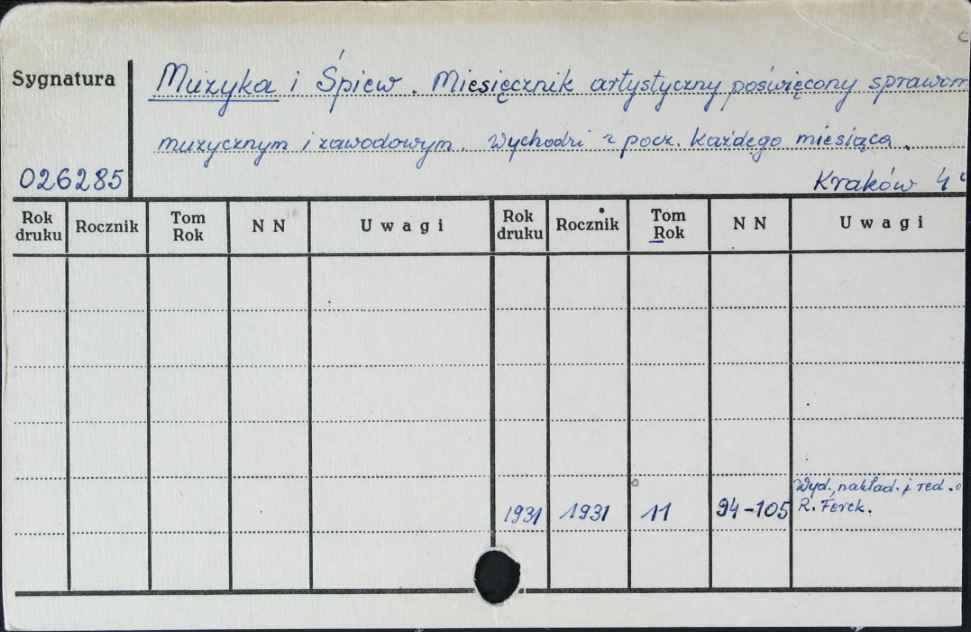 Sygnatura
Muzyka i Śpiew. Miesięcznik artystyczny poświęcony sprawom
muzycznym i zawodowym. Wychodzi z pocz. każdego miesiąca.
026285
Kraków 4°
Rok druku Rocznik Tom Rok NN Uwagi Rok druku Rocznik Tom Rok NN Uwagi
Wyd., nakład. i red.
1931 1931 11 94-105 R. Ferek.